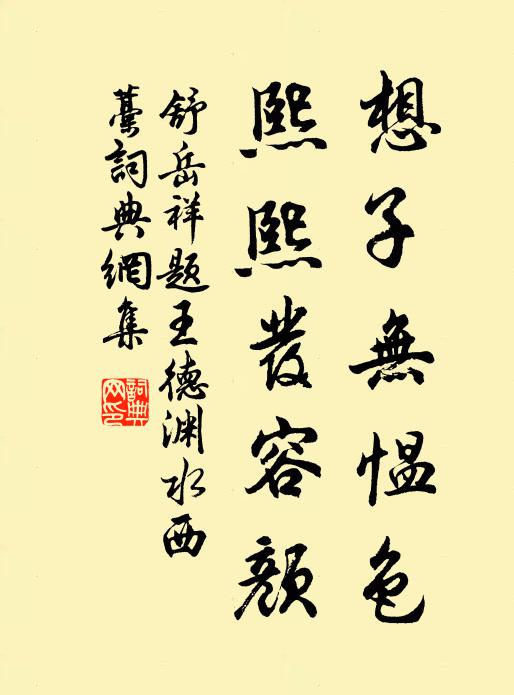 想子無愠色
熙熙發容顔
舒岳祥題王德渊水西
藁詞典網集
詞典
网印